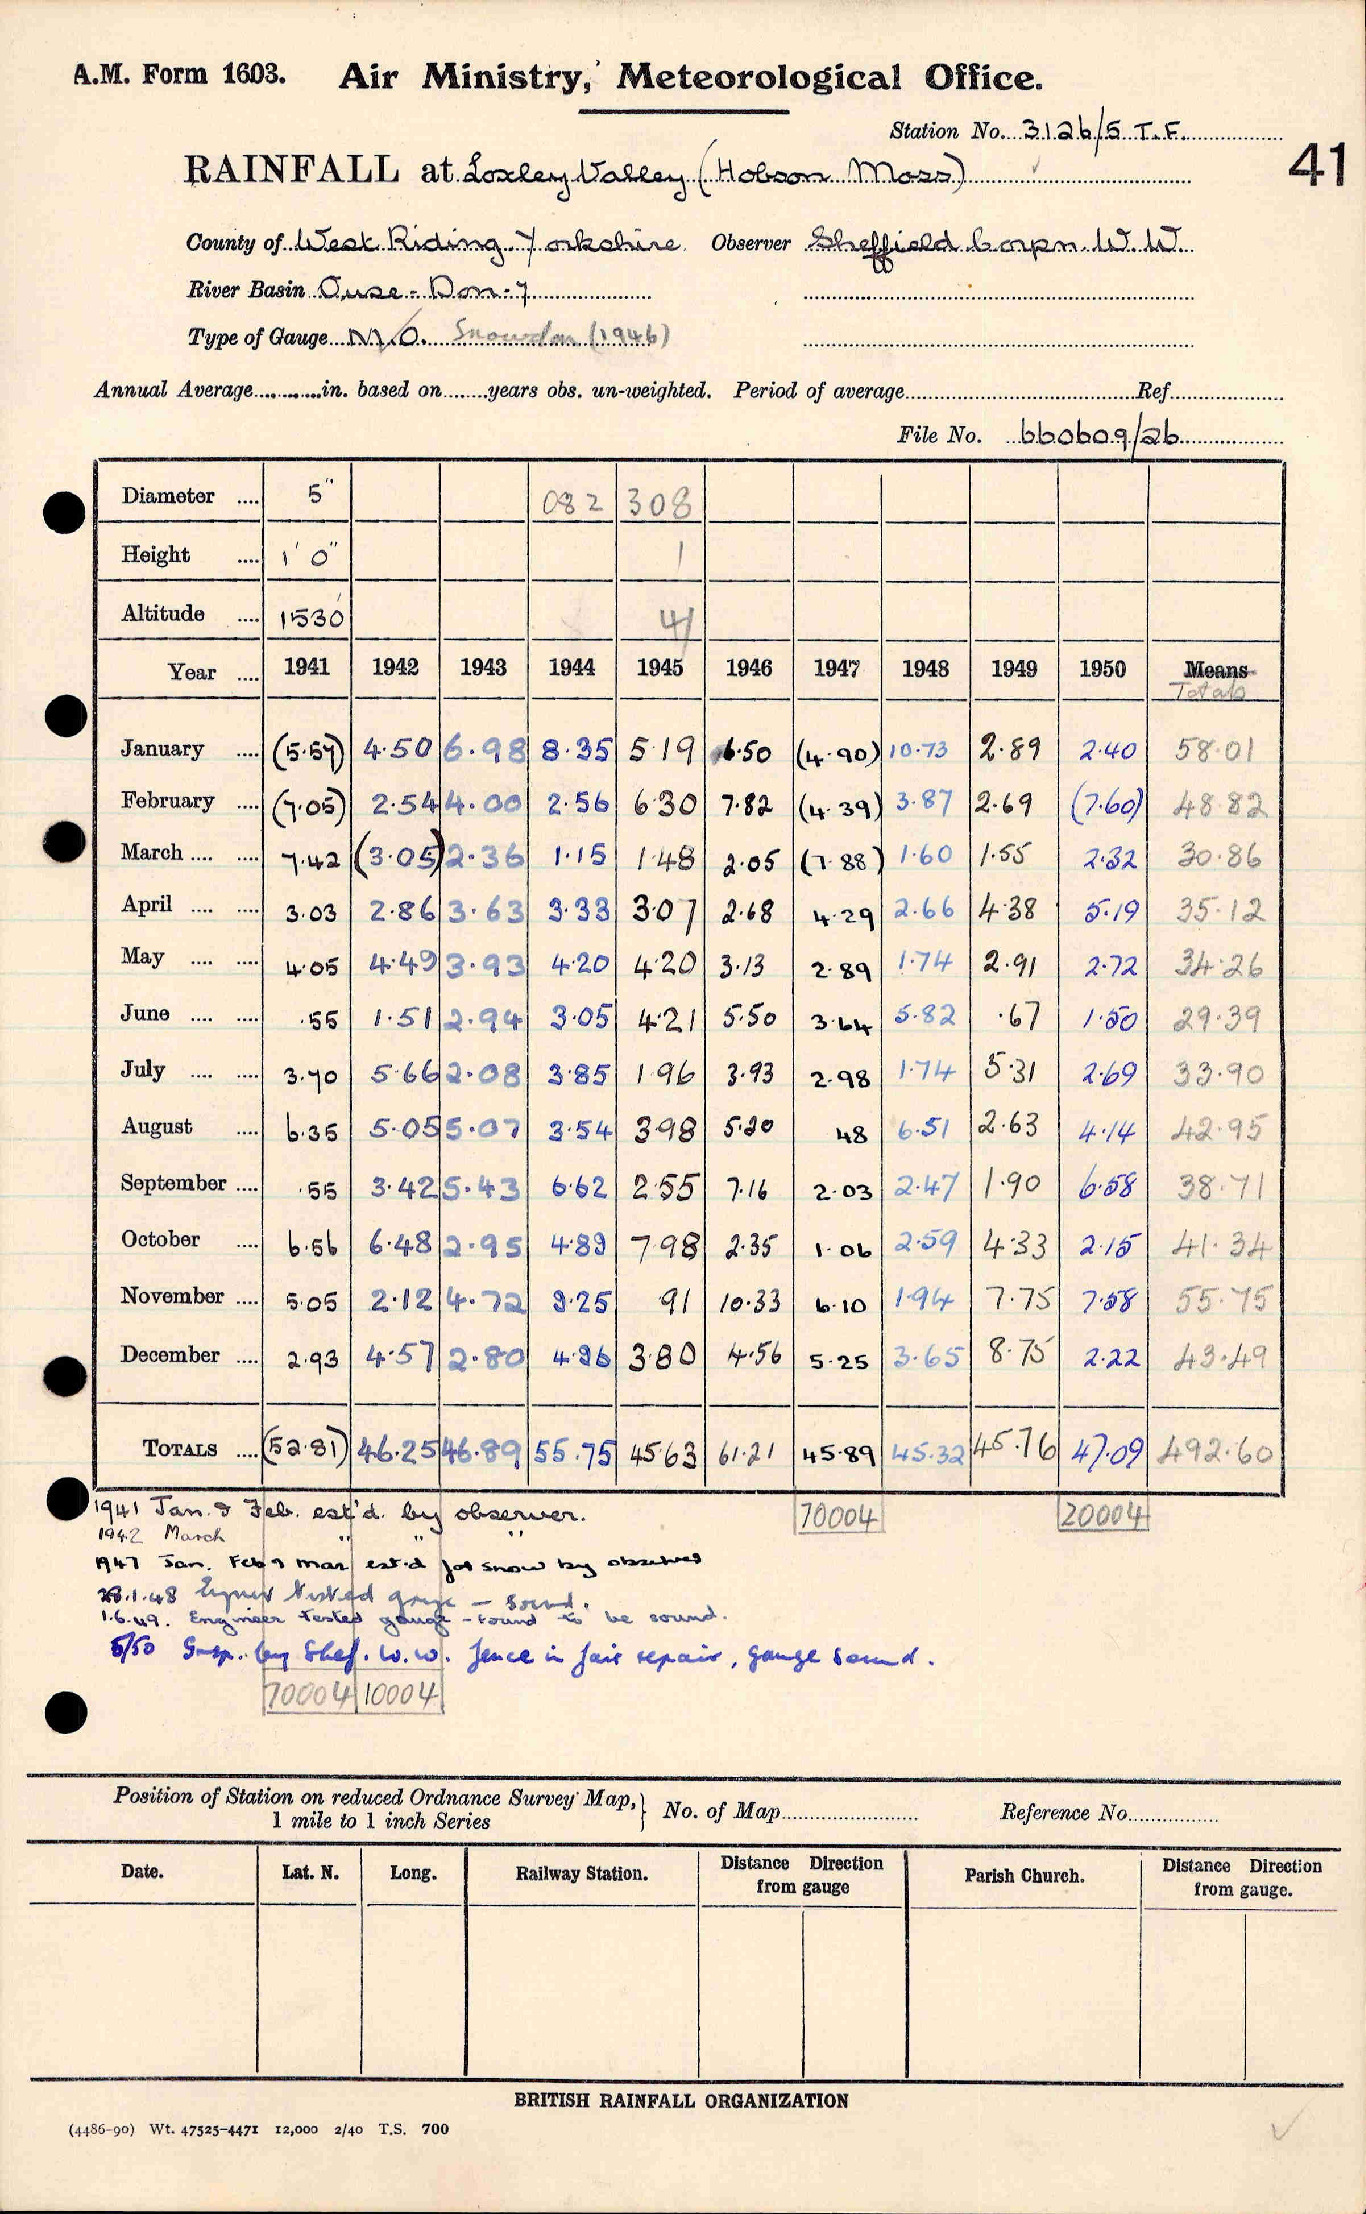 A.M. Form 1603. Air Ministry, Meteorological Office.
Station No. 3126/5 T.F.
41
RAINFALL at Loxley Valley (Hobson Moss)
County of West Riding Yorkshire Observer Sheffield Corpn. W.W.
River Basin Ouse - Don - 7
Type of Gauge M.O. Snowdon (1946)
Annual Average in. based on years obs. un-weighted. Period of average Ref
File No. 660609/26
Diameter 5" 082 308
Height 1' 0" 1
Altitude 1530' 4/
Year 1941 1942 1943 1944 1945 1946 1947 1948 1949 1950 Means
Totals
January (5.57) 4.50 6.98 8.35 5.19 6.50 (4.90) 10.73 2.89 2.40 58.01
February (7.05) 2.54 4.00 2.56 6.30 7.82 (4.39) 3.87 2.69 (7.60) 48.82
March (7.42 (3.05) 2.36 1.15 1.48 2.05 (7.88) 1.60 1.55 2.32 30.86
April 3.03 2.86 3.63 3.33 3.07 2.68 4.29 2.66 4.38 5.19 35.12
May 4.05 4.49 3.93 4.20 4.20 3.13 2.89 1.74 2.91 2.72 34.26
June .55 1.51 2.94 3.05 4.21 5.50 3.64 5.82 .67 1.50 29.39
July 3.70 5.66 2.08 3.85 1.96 3.93 2.98 1.74 5.31 2.69 33.90
August 6.35 5.05 5.07 3.54 3.98 5.20 48 6.51 2.63 4.14 42.95
September .55 3.42 5.43 6.62 2.55 7.16 2.03 2.47 1.90 6.58 38.71
October 6.56 6.48 2.95 4.89 7.98 2.35 1.06 2.59 4.33 2.15 41.34
November 5.05 2.12 4.72 9.25 91 10.33 6.10 1.94 7.75 7.58 55.75
December 2.93 4.57 2.80 4.96 3.80 4.56 5.25 3.65 8.75 2.22 43.49
TOTALS (52.81) 46.25 46.89 55.75 45.63 61.21 45.89 45.32 45.76 47.09 492.60
1941 Jan. & Feb. est'd. by observer. 70004 20004
1942 March " " "
1947 Jan. Feb & Mar est'd for snow by observer
28.1.48 Engineer tested gauge - sound.
1.6.49. Engineer tested gauge - found to be sound.
5/50 Insp. by Shef. W.W. fence in fair repair, gauge sound.
70004 10004
Position of Station on reduced Ordnance Survey Map,
1 mile to 1 inch Series } No. of Map Reference No.
Date. Lat. N. Long. Railway Station. Distance Direction from gauge Parish Church. Distance Direction from gauge.
BRITISH RAINFALL ORGANIZATION
(4486-90) Wt. 47525-4471 12,000 2/40 T.S. 700